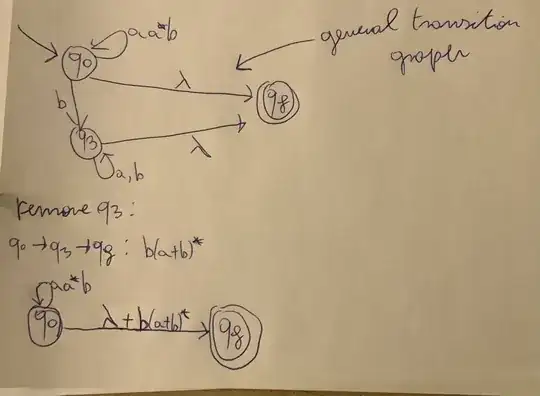 aa*b
general transition
graph
q0
λ
qf
b
q3
λ
a,b
remove q3:
q0→q3→qf: b(a+b)*
aa*b
q0
λ+b(a+b)*
qf